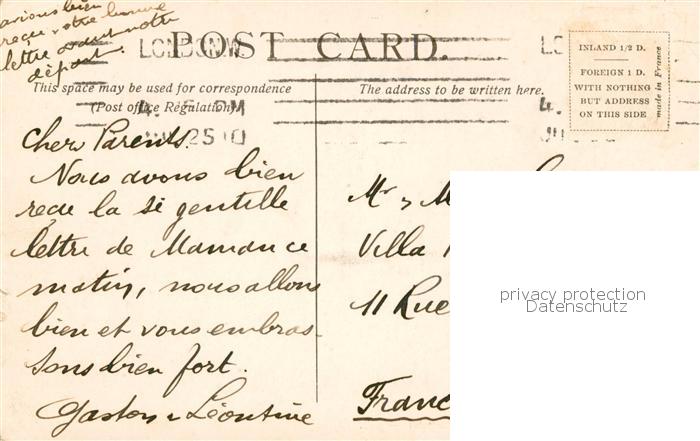 avions bien
reçu votre bonne
lettre avant notre
départ.
LONDON. W
POST CARD.
This space may be used for correspondence
(Post office Regulation).
The address to be written here.
INLAND 1/2 D.
FOREIGN 1 D.
WITH NOTHING
BUT ADDRESS
ON THIS SIDE
made in France
4. PM
25 10
LO
4.
Cher Parents.
Nous avons bien
reçu la si gentille
lettre de Maman ce
matin, nous allons
bien et vous embras-
sons bien fort.
Gaston & Léontine
Mr & M
Villa
11 Rue
Franc
privacy protection
Datenschutz